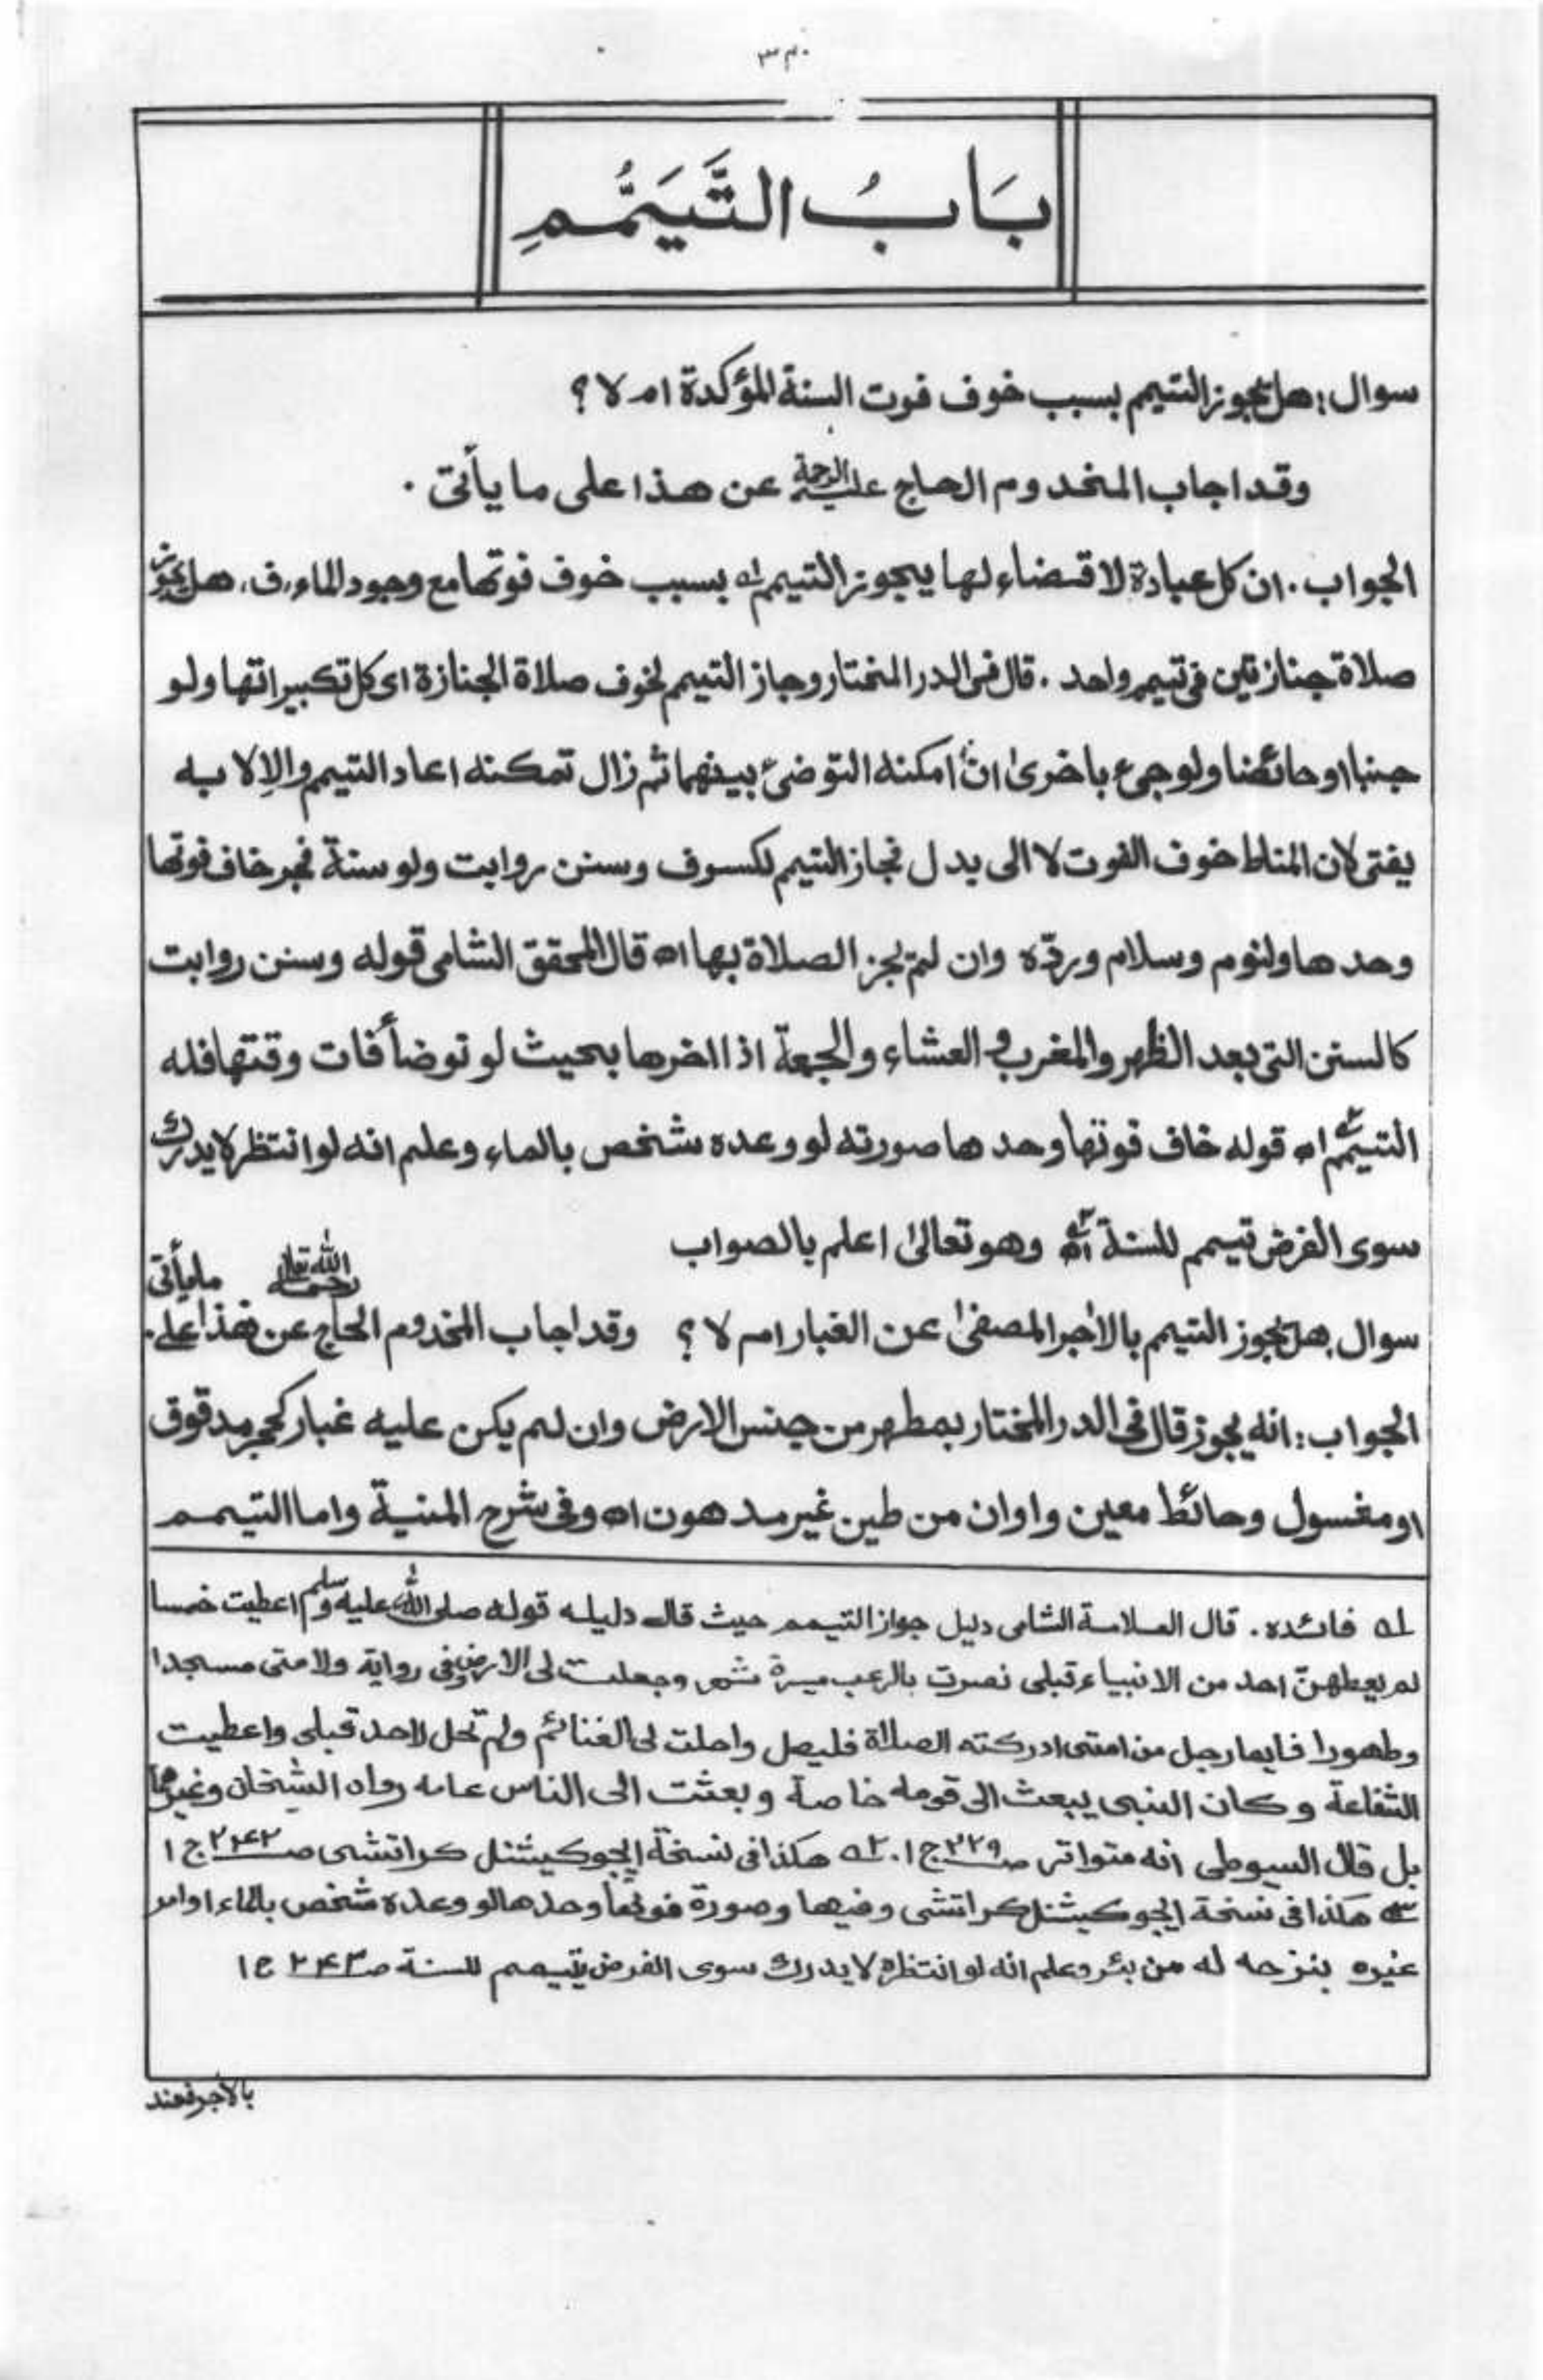 بَابُ التَّيَمُّمِ
سوال: هل يجوز التيمم بسبب خوف فوت السنة المؤكدة ام لا؟
وقد اجاب المخدوم الحاج عليه الرحمة عن هذا على ما يأتى .
الجواب . ان كل عبادة لا قضاء لها يجوز التيمم له بسبب خوف فوتها مع وجود الماء، ف، هل يجوز
صلاة جنازتين فى تيمم واحد . قال فى الدر المختار وجاز التيمم لخوف صلاة الجنازة اى كل تكبيراتها ولو
جنبا او حائضا ولو جىء باخرىٰ انْ امكنه التوضىٔ بينهما ثم زال تمكنه اعاد التيمم والا لا به
يفتى لان المناط خوف الفوت لا الى بدل فجاز التيمم لكسوف وسنن روابت ولو سنة فجر خاف فوتها
وحدها ولنوم وسلام وردّه وان لم تجز الصلاة بها اه قال المحقق الشامى قوله وسنن روابت
كالسنن التى بعد الظهر والمغرب و العشاء والجمعة اذا اخرها بحيث لو توضأ فات وقتها فله
التيمم اه قوله خاف فوتها وحدها صورته لو وعده شخص بالماء وعلم انه لو انتظر لا يدرك
سوى الفرض تيمم للسنة اه وهو تعالىٰ اعلم بالصواب
سوال . هل يجوز التيمم بالاٰجر المصفىٰ عن الغبار ام لا؟ وقد اجاب المخدوم الحاج رحمه الله تعالى عن هذا على ما يأتى .
الجواب: انه يجوز قال فى الدر المختار بمطهر من جنس الارض وان لم يكن عليه غبار كحجر مدقوق
او مغسول وحائط معين واوان من طين غير مدهون اه وفى شرح المنية واما التيمم
له فائده . قال العلامة الشامى دليل جواز التيمم حيث قال دليله قوله صلى الله عليه وسلم اعطيت خمسا
لم يعطهنّ احد من الانبياء قبلى نصرت بالرعب ميسرة شهر وجعلت لى الارض وفى رواية ولامتى مسجدا
وطهورا فايما رجل من امتى ادركته الصلاة فليصل واحلت لى الغنائم ولم تحل لاحد قبلى واعطيت
الشفاعة وكان النبى يبعث الى قومه خاصة وبعثت الى الناس عامه رواه الشيخان وغيرهما
بل قال السيوطى انه متواتر صـ٢٢٩ ج ١ . ٢ه هكذا فى نسخة ايجوكيشنل كراتشى صـ٢٤٢ ج ١
٣ه هكذا فى نسخة ايجوكيشنل كراتشى وفيها وصورة فوتها وحدها لو وعده شخص بالماء او امر
غيره بنزحه له من بئر وعلم انه لو انتظره لا يدرك سوى الفرض يتيمم للسنة صـ٢٤٣ ج ١
بالآجر فعند